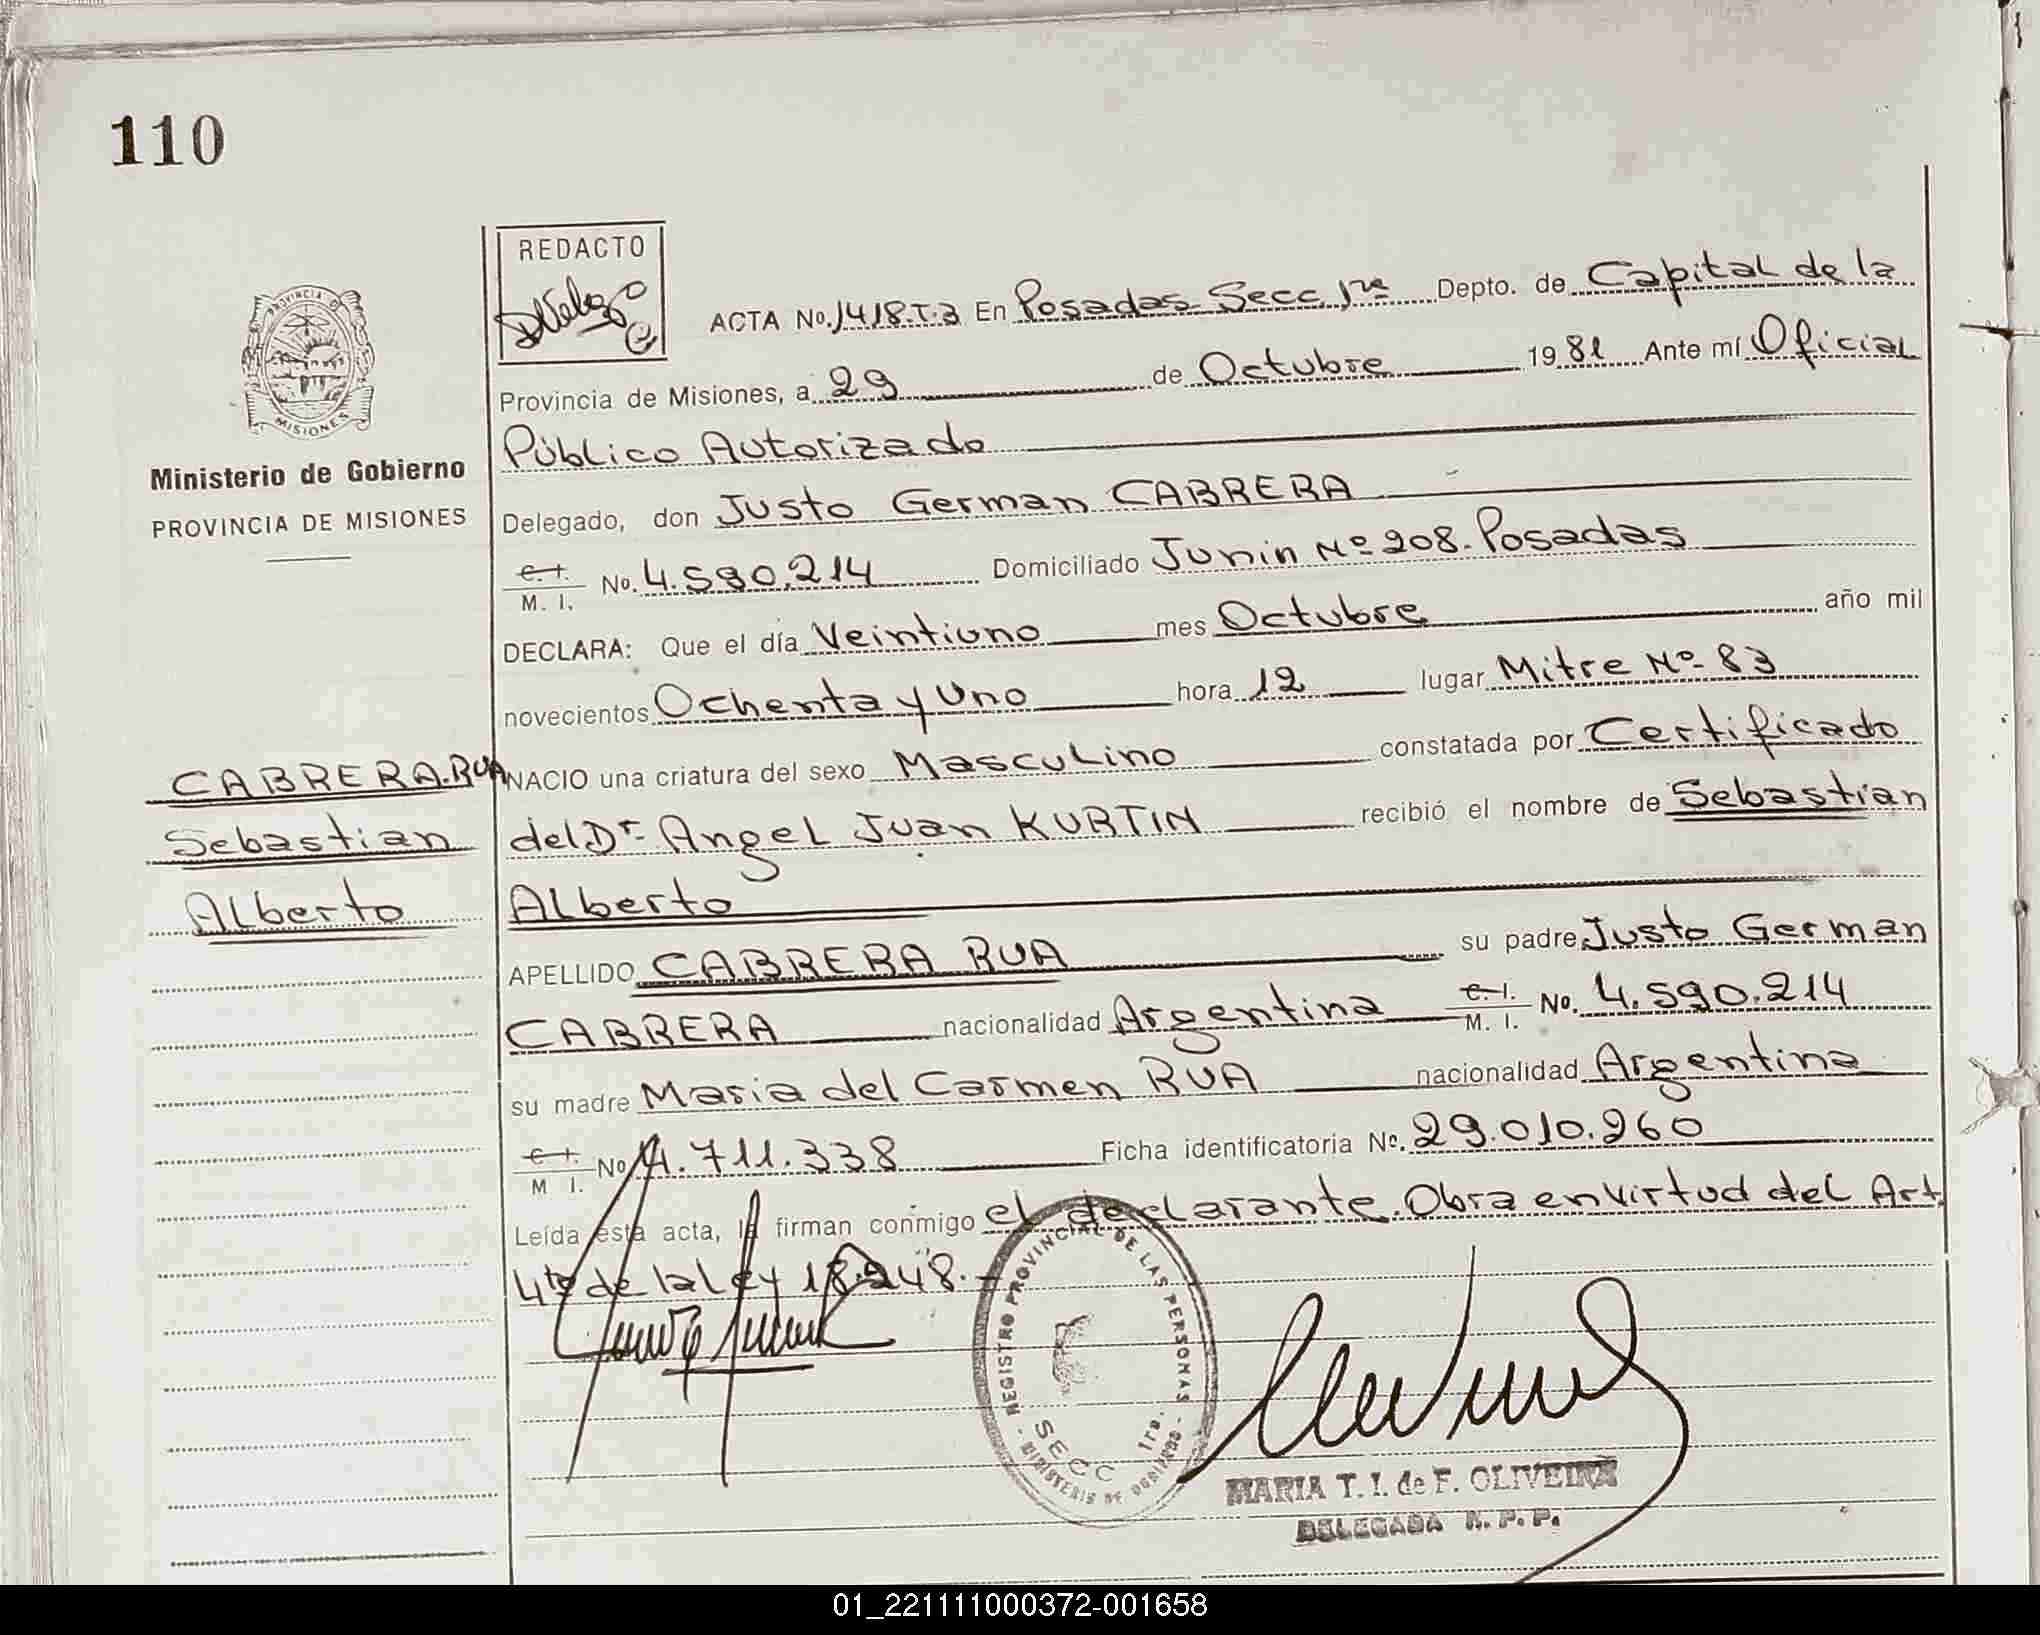 110
REDACTO
PROVINCIA DE
MISIONES
Ministerio de Gobierno
PROVINCIA DE MISIONES
CABRERA RUA
Sebastian
Alberto
ACTA No. 1418.T.3 En Posadas Secc 1ra Depto. de Capital de la
Provincia de Misiones, a 29 de Octubre 1981 Ante mí Oficial
Público Autorizado
Delegado, don Justo German CABRERA
C. I. M. I. No. 4.590.214 Domiciliado Junin Nº 208. Posadas
DECLARA: Que el día Veintiuno mes Octubre año mil
novecientos Ochenta y Uno hora 12 lugar Mitre Nº 83
NACIO una criatura del sexo Masculino constatada por Certificado
del Dr. Angel Juan KURTIN recibió el nombre de Sebastian
Alberto
APELLIDO CABRERA RUA su padre Justo German
CABRERA nacionalidad Argentina C. I. M. I. No. 4.590.214
su madre Maria del Carmen RUA nacionalidad Argentina
C. I. M I. No 4.711.338 Ficha identificatoria Nº. 29.010.260
Leída esta acta, la firman conmigo el declarante. Obra en virtud del Art.
4to de la Ley 18.248.-
REGISTRO PROVINCIAL DE LAS PERSONAS
SECC 1ra.
MINISTERIO DE GOBIERNO
MARIA T. I. de F. OLIVEIRA
DELEGADA R. P. P.
01_221111000372-001658